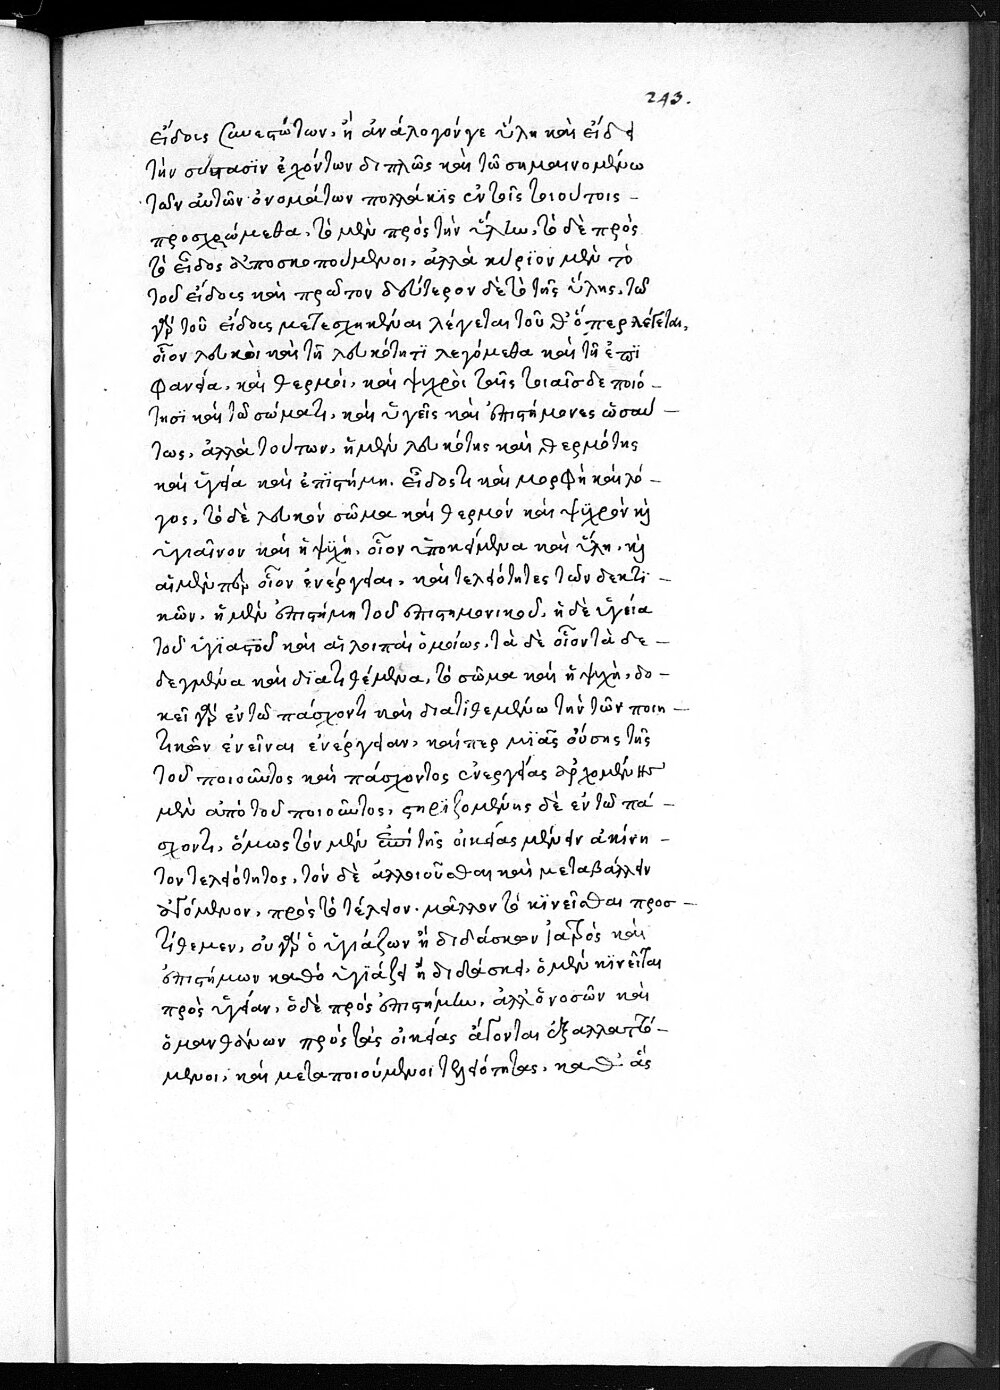 243.
εἴδους συνεστώτων, ἢ ἀνάλογόν γε ὕλῃ καὶ εἴδει
τὴν σύστασϊν ἐχόντων διπλῶς καὶ τῶ σημαινομένω
τῶν αὐτῶν ὀνομάτων πολλάκϊς ἐν τοῖς τοιούτοις –
προσχρώμεθα, τὸ μὲν πρὸς τὴν ὕλην, τὸ δὲ πρὸς
τὸ εἶδος ἀποσκοπούμενοι, ἀλλὰ κύρϊον μὲν τὸ
τοῦ εἴδους καὶ πρῶτον δεύτερον δὲ τὸ τῆς ὕλης, τῶ
γὰρ τοῦ εἴδους μετεσχηκέναι λέγεται τοῦθ' ὅπερ λέγεται,
οἷον λευκοὶ καὶ τῆ λευκότητϊ λεγόμεθα καὶ τῆ ἐπϊ
φανεία, καὶ θερμοὶ, καὶ ψυχροὶ ταῖς τοιαῖσδε ποιό –
τησϊ καὶ τῶ σώματι, καὶ ὑγιεῖς καὶ ἐπιστήμονες ὡσαύ –
τως, ἀλλὰ τούτων, ἡ μὲν λευκότης καὶ θερμότης
καὶ ὑγεία καὶ ἐπϊστήμη. εἶδος τι καὶ μορφὴ καὶ λό –
γος, τὸ δὲ λευκὸν σῶμα καὶ θερμὸν καὶ ψϋχρὸν καὶ
ὑγιαῖνον καὶ ἡ ψϋχὴ, οἷον ὑποκείμενα καὶ ὕλη, καὶ
αἱ μὲν οἷον ἐνέργειαι, καὶ τελειότητες τῶν δεκτϊ –
κῶν, ἡ μὲν ἐπιστήμη τοῦ ἐπιστημονικοῦ, ἡ δὲ ὑγεία
τοῦ ὑγϊαστοῦ καὶ αἱ λοιπαὶ ὁμοίως, τὰ δὲ οἷον τὰ δε –
δεγμένα καὶ δϊατιθέμενα, τὸ σῶμα καὶ ἡ ψυχὴ, δο –
κεῖ γὰρ ἐν τῶ πάσχοντι καὶ διατϊθεμένω τὴν τῶν ποιη –
τικῶν ἐνεῖναι ἐνέργειαν, καίπερ μϊᾶς οὔσης τῆς
τοῦ ποιοῦντος καὶ πάσχοντος ἐνεργείας ἀρχομένης
μὲν ἀπὸ τοῦ ποιοῦντος, στηρϊζομένης δὲ ἐν τῶ πά –
σχοντι, ὅμως τὸν μὲν ἐπὶ τῆς οἰκείας μένειν ἀκίνη –
τον τελειότητος, τὸν δὲ ἀλλοιοῦσθαι καὶ μεταβάλλειν
ἀγόμενον, πρὸς τὸ τέλειον. μᾶλλον τὸ κϊνεῖσθαι προσ –
τίθεμεν, οὐ γὰρ ὁ ὑγιάζων ἢ διδάσκων ἰατρὸς καὶ
ἐπιστήμων καθὸ ὑγϊάζει ἢ διδάσκει, ὁ μὲν κϊνεῖται
πρὸς ὑγείαν, ὁ δὲ πρὸς ἐπιστήμην, ἀλλ' ὁ νοσῶν καὶ
ὁ μανθάνων πρὸς τὰς οἰκείας ἄγονται ἐξαλλαττό –
μενοι, καὶ μεταποιούμενοι τελειότητας, καθ' ἃς